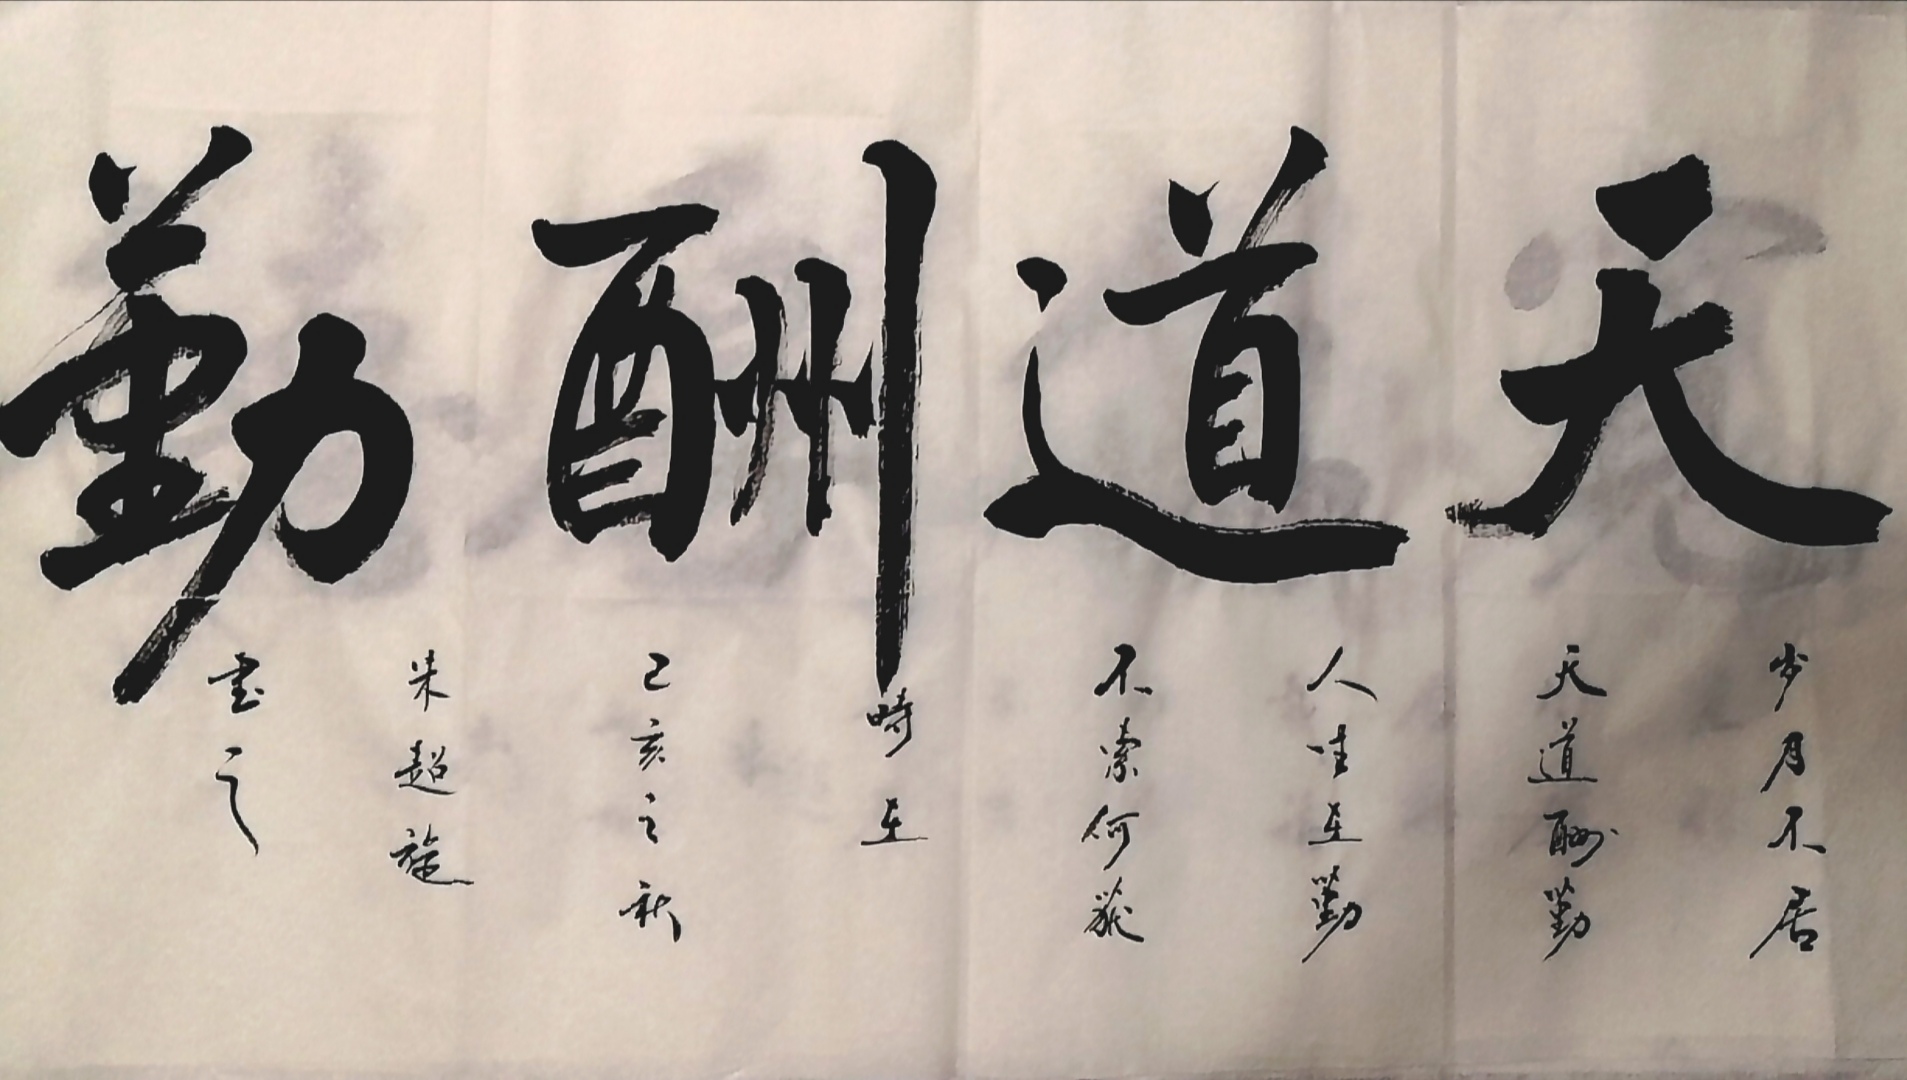 天道酬勤
岁月不居
天道酬勤
人生在勤
不索何获
時在
己亥之秋
朱超旋
書之